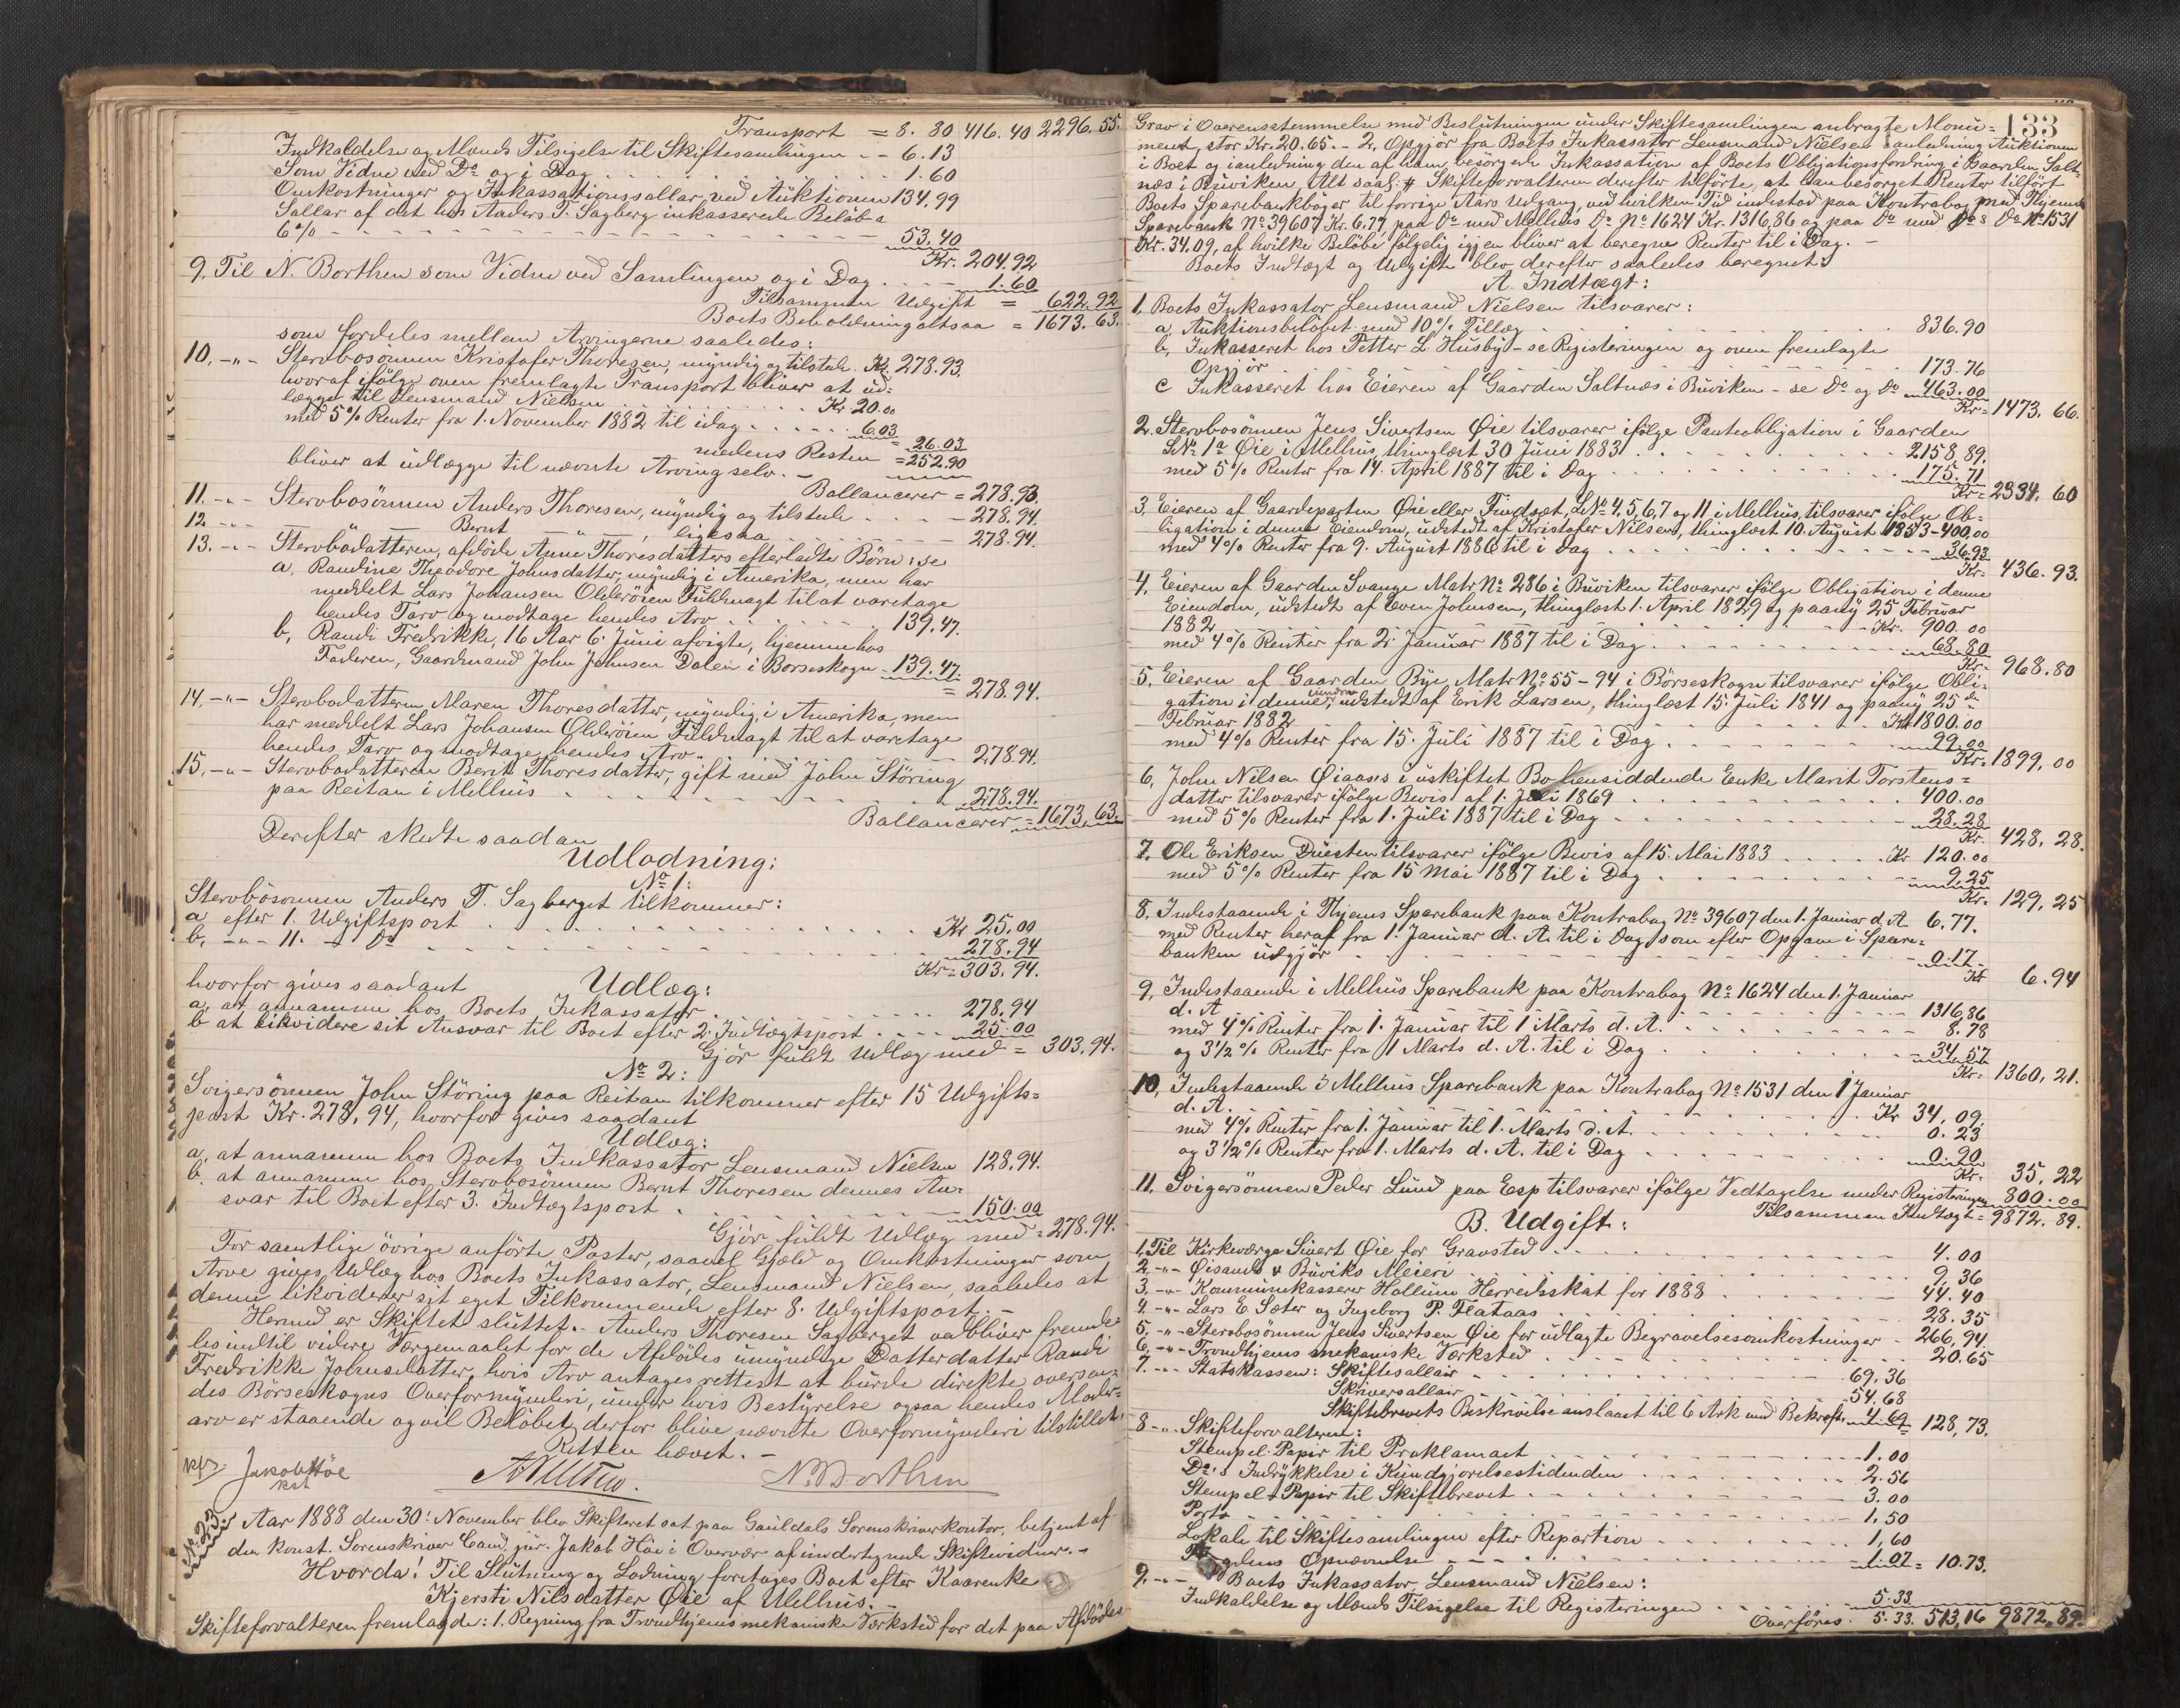 Transport = 8. 80 416. 40 2296. 55.
Indkaldelse og Mands Tilsigelse til Skiftesamlingen - - 6.13
Som Vidne ved Do og i Dag . . . . 1.60
Omkostninger og Inkassationssallar ved Auktionen 134.99
Sallar af det hos Anders T. Sagberg inkasserede Beløb a
6% - - - - 53.40
Kr. 204.92
9. Til N. Borthen som Vidne ved Samlingen og i Dag . . . . 1.60
Tilsammen Udgift = 622.92
Boets Beholdning altsaa = 1673.63.
som fordeles mellem Arvingerne saaledes:
10, -"- Stervbosønnen Kristofer Thoresen, myndig og tilstede. Kr. 278.93.
hvoraf ifølge oven fremlagte Transport bliver at ud-
lægge til Lensmand Nielsen . . . . Kr. 20.00
med 5% Renter fra 1. November 1882 til idag . . . . 6.03
= 26.03
medens Resten = 252.90
bliver at udlægge til nævnte Arving selv. -
Ballancerer = 278.93.
11. -"- Stervbosønnen Anders Thoresen, myndig og tilstede . . . . 278.94.
12 -"- — Bernt —"— , ligesaa . . . . 278.94.
13. -"- Stervbodatteren, afdøde Anne Thoresdatters efterladte Børn: se:
a. Randine Theodore Johnsdatter, myndig i Amerika, men har
meddelt Lars Johansen Olderøien Fuldmagt til at varetage
hendes Tarv og modtage hendes Arv . . . . 139.47.
b, Randi Fredrikke, 16 Aar 6. Juni afvigte, hjemme hos
Faderen, Gaardmand John Johnsen Dalen i Børseskogn - 139.47.
= 278.94.
14, -"- Stervbodatteren Maren Thoresdatter, myndig, i Amerika, men
har meddelt Lars Johansen Olderøien Fuldmagt til at varetage
hendes Tarv og modtage hendes Arv . . . . 278.94.
15, -"- Stervbodatteren Berit Thoresdatter, gift med John Støring
paa Reitan i Melhus . . . . 278.94.
Ballancerer = 1673.63.
Derefter skedte saadan
Udlodning:
No 1:
Stervbosønnen Anders T. Sagberget tilkommer:
a, efter 1. Udgiftspost . . . . Kr 25.00
b, -"- 11. — Do . . . . 278.94
Kr = 303.94.
hvorfor gives saadant Udlæg:
a, at annamme hos Boets Inkassator . . . . 278.94
b at likvidere sit Ansvar til Boet efter 2. Indtægtspost . . . . 25.00
Gjør fuldt Udlæg med = 303.94.
No 2:
Svigersønnen John Støring paa Reitan tilkommer efter 15 Udgifts=
post Kr. 278.94, hvorfor gives saadant
Udlæg:
a, at annamme hos Boets Inkassator Lensmand Nielsen 128.94.
b, at annamme hos Stervbosønnen Bernt Thoresen dennes An-
svar til Boet efter 3. Indtægtspost . . . . 150.00
Gjør fuldt Udlæg med = 278.94.
For samtlige øvrige anførte Poster, saavel Gjæld og Omkostninger som
Arve gives Udlæg hos Boets Inkassator, Lensmand Nielsen, saaledes at
denne likviderer sit eget Tilkommende efter 8. Udgiftspost. -
Hermed er Skiftet sluttet. - Anders Thoresen Sagberget vedbliver fremde-
les indtil videre Værgemaalet for de Afdødes umyndige Datterdatter Randi
Fredrikke Johnsdatter, hvis Arv antages rettest at burde direkte oversen-
des Børseskogns Overformynderi, under hvis Bestyrelse ogsaa hendes Moder-
arv er staaende og vil Beløbet derfor blive nævnte Overformynderi tilstillet.
Retten hævet. -
Jakob Høe
kst
N. Borthen
No 23.
Aar 1888 den 30: November blev Skifteret sat paa Gauldals Sorenskriverkontor, betjent af
den konst. Sorenskriver Cand. jur. Jakob Høe i Overvær af undertegnede Skiftevidner. -
Hvorda! Til Slutning og Lodning foretages Boet efter Kaarenke
Kjersti Nilsdatter Øie af Melhus. -
Skifteforvalteren fremlagde: 1. Regning fra Trondhjems mekaniske Værksted for det paa Afdødes
133
Grav i Overensstemmelse med Beslutningen under Skiftesamlingen anbragte Monu-
ment, stor Kr. 20.65. - 2. Opgjør fra Boets Inkassator Lensmand Nielsen i anledning Auktionen
i Boet og i anledning den af ham besørgede Inkassation af Boets Obligationsfordring i Gaarden Salt-
næs i Buviken, Alt saal. # Skifteforvalteren derefter tilførte, at han besørget Renter tilført
Boets Sparebankbøger til forrige Aars Udgang, ved hvilken Tid indestod paa Kontrabog med Thjems
Sparebank No 39607 Kr. 6.77, paa Do med Melhus Do No 1624 Kr. 1316,86 og paa Do med Do s Do No 1531
Kr. 34.09, af hvilke Beløbe følgelig igjen bliver at beregne Renter til i Dag. -
Boets Indtægt og Udgift blev derefter saaledes beregnet:
A. Indtægt:
1. Boets Inkassator Lensmand Nielsen tilsvarer:
a, Auktionsbeløbet med 10% Tillæg . . . . 836.90
b, Inkasseret hos Petter L. Husby - se Registeringen og oven fremlagte
Opgjør . . . . 173.76
c Inkasseret hos Eieren af Gaarden Saltnæs i Buviken - se Do og Do 463.00
Kr = 1473. 66.
2. Stervbosønnen Jens Sivertsen Øie tilsvarer ifølge Panteobligation i Gaarden
LNo 1a Øie i Melhus, thinglæst 30 Juni 1883 . . . . 2158.89.
med 5% Renter fra 14. April 1887 til i Dag . . . . 175.71
Kr = 2334. 60
3. Eieren af Gaardeparten Øie eller Findsæt, LNo 4, 5, 6, 7 og 11 i Melhus, tilsvarer ifølge Ob-
ligation i denne Eiendom, udstedt af Kristofer Nilsen, thinglæst 10. August 1853 - 400,00
med 4% Renter fra 9. August 1886 til i Dag . . . . 36.93
Kr = 436. 93.
4, Eieren af Gaarden Svange Matr No 286 i Buviken tilsvarer ifølge Obligation i denne
Eiendom, udstedt af Even Johnsen, thinglæst 1. April 1829 og paany 25 Februar
1882 . . . . Kr. 900.00
med 4% Renter fra 2. Januar 1887 til i Dag . . . . 68.80
Kr = 968.80
5, Eieren af Gaarden Bye Matr No 55 - 94 i Børseskogn tilsvarer ifølge Obli-
gation i denne, udstedt af Erik Larsen, thinglæst 15. Juli 1841 og paany 25 de
Februar 1882 . . . . Kr 1800.00
med 4% Renter fra 15. Juli 1887 til i Dag . . . . 99.00
Kr = 1899.00
6, John Nilsen Øiaases i uskiftet Bo hensiddende Enke Marit Torstens=
datter tilsvarer ifølge Bevis af 1. Juli 1869 . . . . 400.00
med 5% Renter fra 1. Juli 1887 til i Dag . . . . 28.28
Kr. 428. 28.
7. Ole Eriksen Druesten tilsvarer ifølge Bevis af 15. Mai 1883 . . . . Kr 120.00
med 5% Renter fra 15 Mai 1887 til i Dag . . . . 9.25
Kr. 129. 25
8. Indestaaende i Thjems Sparebank paa Kontrabog No 39607 den 1. Januar d. A. 6.77.
med Renter heraf fra 1. Januar d. A. til i Dag, som efter Opgave i Spare=
banken udgjør . . . . 0.17
Kr 6.94
9, Indestaaende i Melhus Sparebank paa Kontrabog No 1624 den 1. Januar
d. A . . . . 1316,86
med 4% Renter fra 1. Januar til 1 Marts d. A. . . . . 8.78
og 3 1/2 % Renter fra 1 Marts d. A. til i Dag . . . . 34.57
Kr = 1360, 21.
10, Indestaaende i Melhus Sparebank paa Kontrabog No 1531 den 1 Januar
d. A. . . . . Kr 34,09,
med 4% Renter fra 1. Januar til 1. Marts d. A. . . . . 0.23
og 3 1/2 % Renter fra 1. Marts d. A. til i Dag . . . . 0.90
Kr = 35, 22
11. Svigersønnen Peder Lund paa Esp tilsvarer ifølge Vedtagelse under Registeringen 800.00
Tilsammen Indtægt = 9872. 89.
B. Udgift:
1, Til Kirkeværge Sivert Øie for Gravsted . . . . 4.00
2, -"- Øisands & Buviks Meieri . . . . 9,36
3. -"- Kommunekasserer Hollum Herredsskat for 1888 . . . . 44.40
4. -"- Lars E. Sæter og Ingeborg P. Flataas . . . . 28.35
5, -"- Stervbosønnen Jens Sivertsen Øie for udlagte Begravelsesomkostninger - 266,94.
6, -"- Trondhjems mekaniske Værksted . . . . 20.65
7. -"- Statskassen: Skiftesallair . . . . 69.36
Skriversallair . . . . 54.68
Skiftebrevets Beskrivelse anslaaet til 6 Ark med Bekræft. 4.69 = 128,73.
8 -"- Skifteforvalteren:
Stempel-Papir til Proklamaet . . . . 1.00
Do's Indrykkelse i Kundgjørelsestidenden . . . . 2.56
Stempel & Papir til Skiftebrevet . . . . 3.00
Porto . . . . 1,50
Lokale til Skiftesamlingen efter Repartion . . . . 1,60
Opnævnelse . . . . 1.07 = 10.73.
9, -"- Boets Inkassator, Lensmand Nielsen:
Indkaldelse og Mands Tilsigelse til Registeringen . . . . 5.33
Overføres. 5.33. 513,16 9872.89.